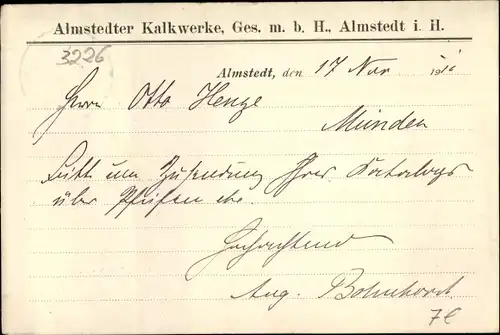 Almstedter Kalkwerke, Ges. m. b. H., Almstedt i. H.
3226
Almstedt, den 17 Nov 191
Herrn Otto Henze
Münden
Bitte um Zusendung Ihres Katalogs
über Pfeifen etc.
Hochachtend
Aug. Bohnhorst
7€